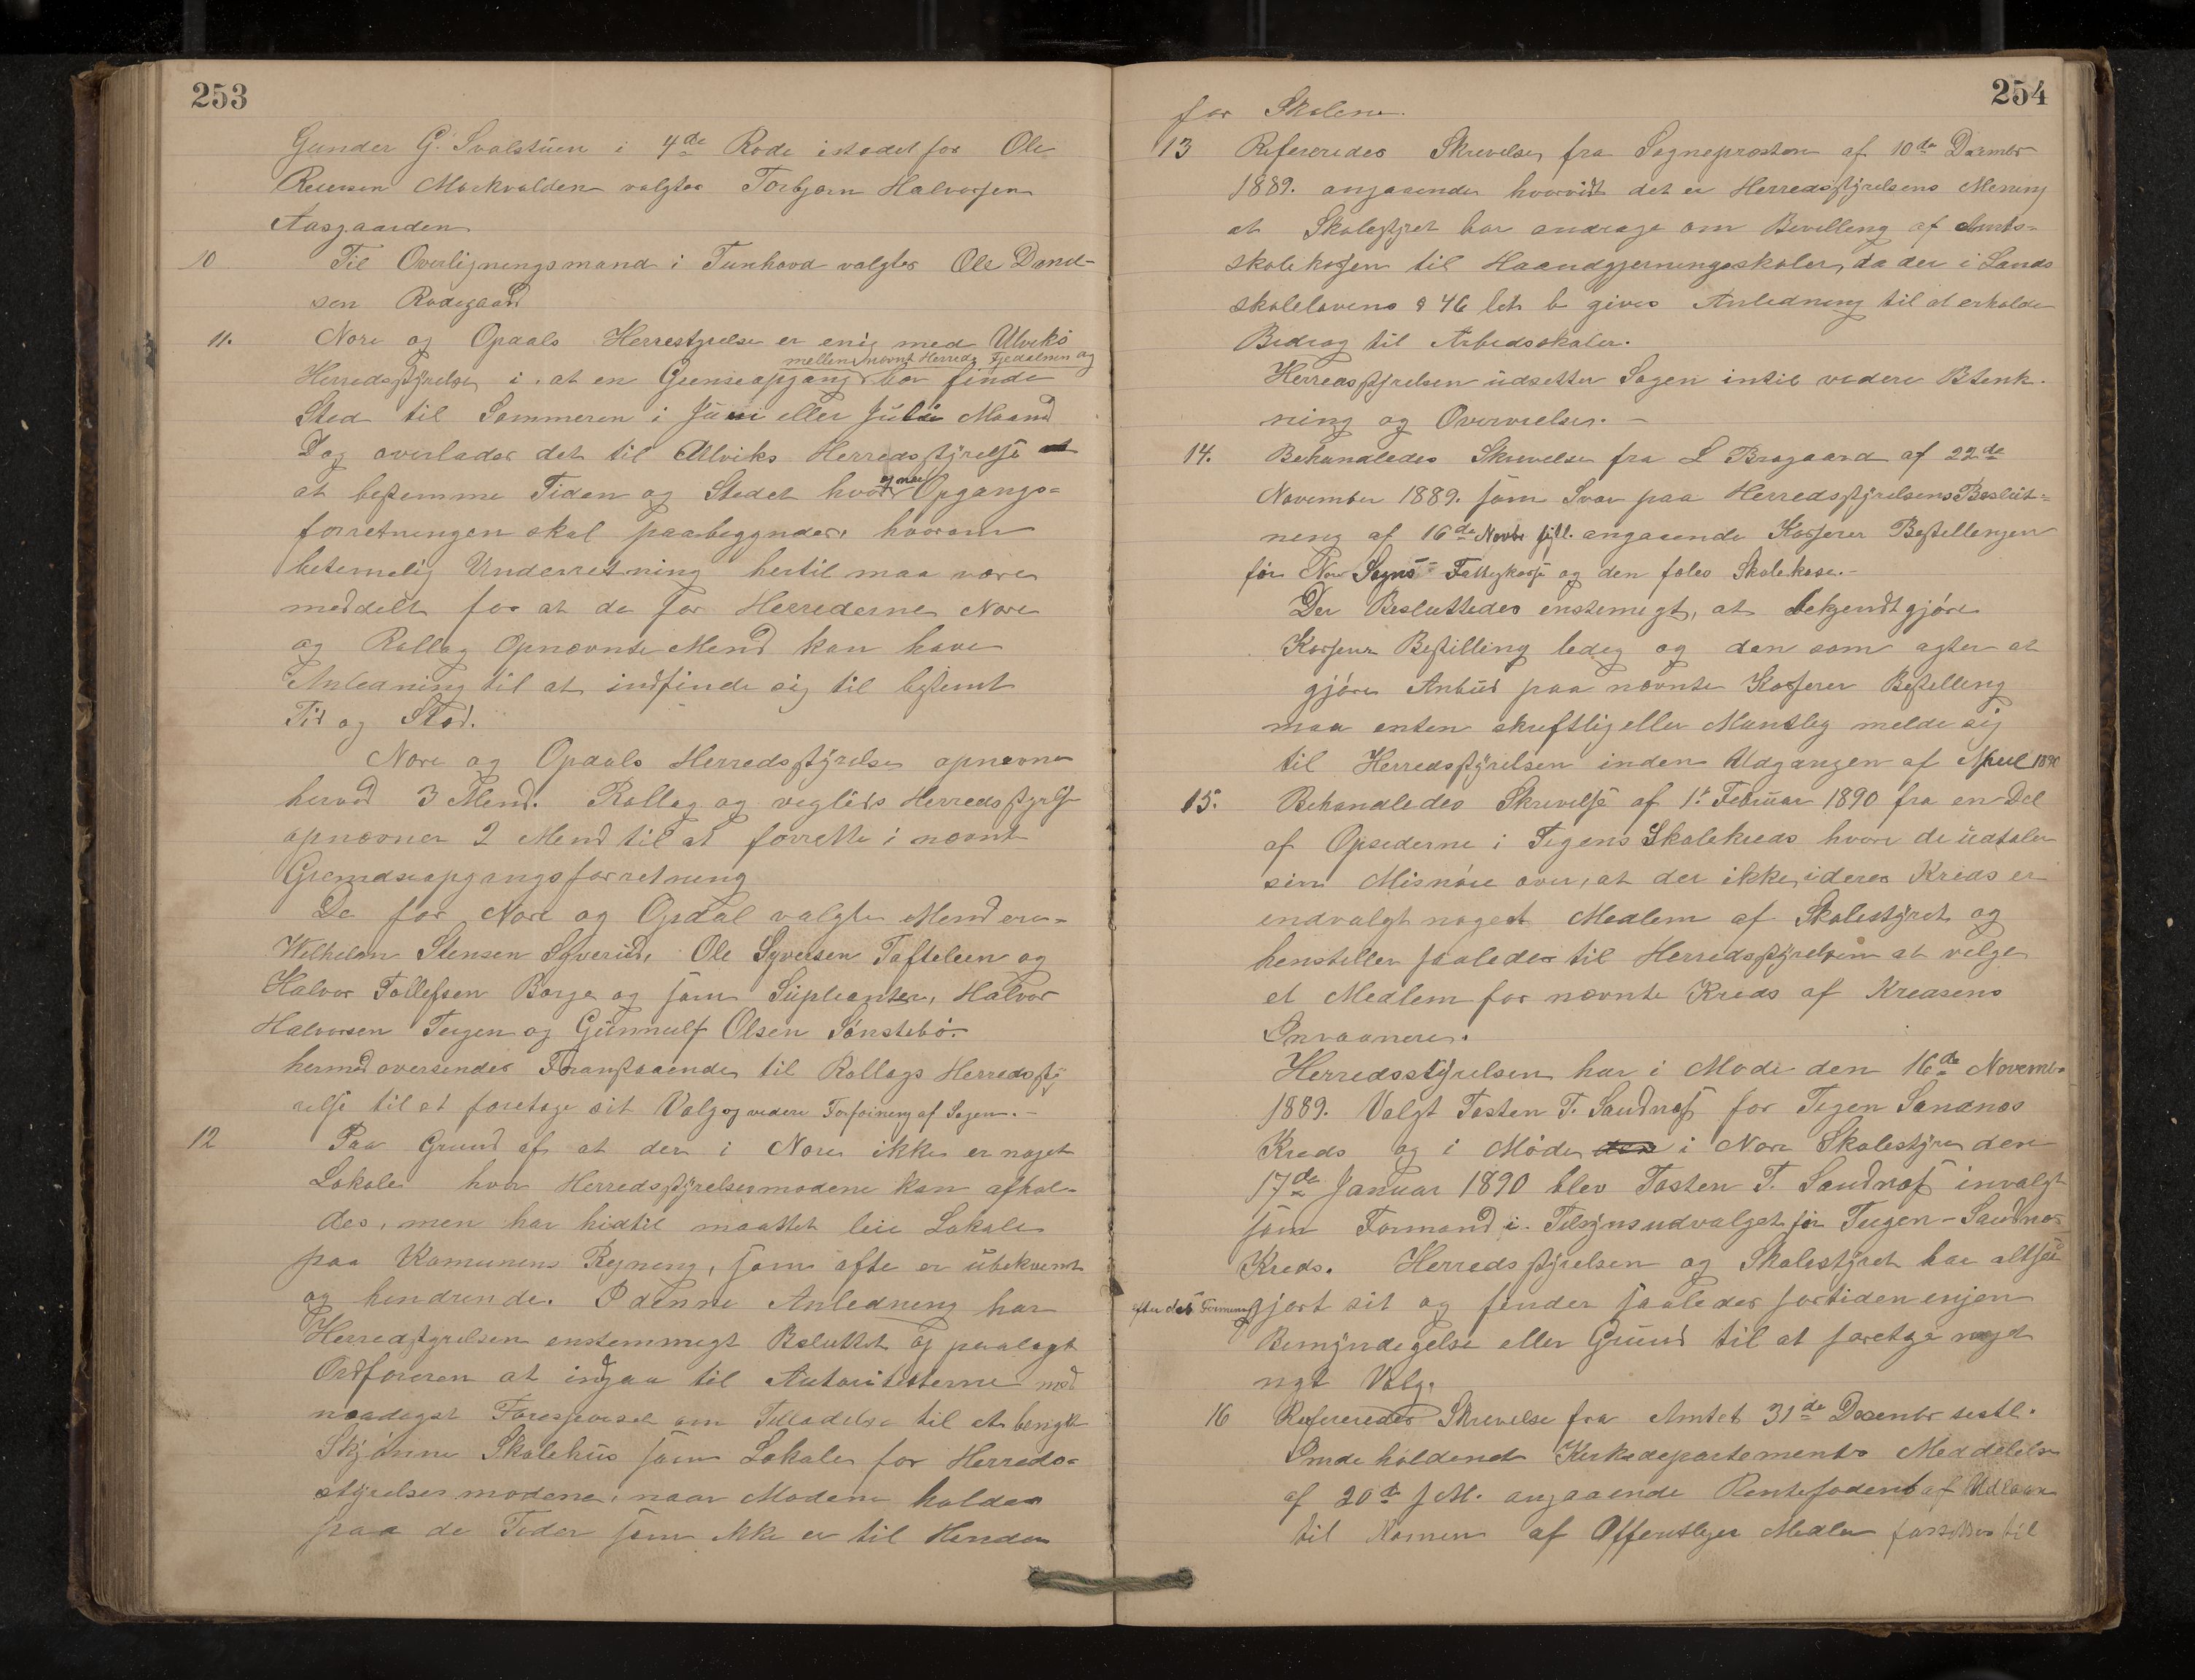 253
Gunder G. Svalstuen i 4de Rode istedet for Ole
Reiersen Morkvolden valgtes Torbjørn Halvorsen
Aasgaarden
10 Til Overligningsmand i Tunhovd valgtes Ole Danel-
sen Rodegaard
11. Nore og Opdals Herrestyrelse er enig med Ulviks
mellem nævnt Herred, Fjedalmen og
Herredsstyrelse i. at en Grenseopgang bør finde
Sted til Sommeren i Juni eller Juli Maaned
Dog overlades det til Ulviks Herredsstyrelse
at bestemme Tiden og Stedet hvor og naar Opgangs-
forretningen skal paabegyndes, hvorom
betimelig Underretning hertil maa være
meddelt for at de for Herrederne Nore
og Rollag Opnævnte Mend kan have
Anledning til at indfinde sig til bestemt
Tid og Sted.
Nore og Opdals Herredsstyrelse opnævner
herved 3 Mend. Rollag og veglids Herredsstyrelse
opnævner 2 Mend til at forrette i nævnt
Grendseopgangsforretning
De for Nore og Opdal valgte Mend ere-
Wilhelm Stensen Syverud, Ole Syversen Tafteleen og
Halvor Tollefsen Borge og som Supleanter, Halvor
Halvorsen Teigen og Gunnulf Olsen Sønstebø.
hermed oversendes Foranstaaende til Rollags Herredssty
relse til at foretage sit Valg og videre Forføining af Sagen.-
12 Paa Grund af at der i Nore ikke er noget
Lokale hvor Herredsstyrelsesmødene kan afhol-
des, men har hidtil maattet leie Lokale
paa Komunens Regning, som ofte er ubekvemt
og hendrende. I denne Anledning har
Herredstyrelsen enstemmigt Besluttet og paalagt
Ordføreren at indgaa til Autoriteterne med
naadigst Forespørsel om Tilladelse til at benytte
Skjønne Skolehus som Lokale for Herreds-
styrelses mødene, naar Mødene holdes
paa de Tider som ikke er til Hender
254
for Skolene.
13 Refereredes Skrivelse fra Sogneprosten af 10de Decmbr
1889. angaaende hvorvidt det er Herredsstyrelsens Mening
at Skolestyret bør andrage om Bevilling af Amts-
skolekassen til Haandgjerningsskoler, da der i Lands
skolelovens § 46 lit b gives Anledning til at erholde
Bidrag til Arbeidsskoler.
Herredsstyrelsen udsetter Sagen intil videre Btenk-
ning og Overveielser.-
14. Behandledes Skrivelse fra L Bragaard af 22de
November 1889. som Svar paa Herredsstyrelsens Beslut-
ning af 16de Novbr sistl. angaaende Kasserer Bestillingen
for Nore Sogns Fattigkasse og den fæles Skolekasse.-
Der Besluttedes enstemigt, at bekjendtgjøre
Kasserer Bestilling ledig og den som agter at
gjøre Anbud paa nævnte Kasserer Bestilling
maa enten skriftlig eller Muntlig melde sig
til Herredsstyrelsen inden Udgangen af April 1890
15. Behandledes Skrivelse af 1ste Februar 1890 fra en Del
af Opsederne i Tegens Skolekreds hvori de udtaler
sin Misnøie over, at der ikke i deres Kreds er
indvalgt noget Medlem af Skolestyret og
henstiller saaledes til Herredsstyrelsen at velge
et Medlem for nævnte Kreds af Kredsens
Invaanere.
Herredsstyrelsen har i Møde den 16de Novembr
1889. Valgt Tosten T. Sandnæs for Tegen Sandnæs
Kreds og i Møde den i Nore Skolestyre den
17de Januar 1890 blev Tosten T. Sandnæs invalgt
som Formand i Tilsynsudvalget for Teigen-Sandnæs
Kreds. Herredsstyrelsen og Skolestyret har altsaa
efter det Formening gjort sit og finder saaledes fortiden ingen
Bemyndegelse eller Grund til at foretage noget
nyt Valg.
16 Refereredes Skrivelse fra Amtet 31de Decembr sistl.
Indeholdende Kirkedepartements Meddelelse
af 20de s M. angaaende Rentefoden af Udlaan
til Komuner af Offentlige Midler fastsettes til